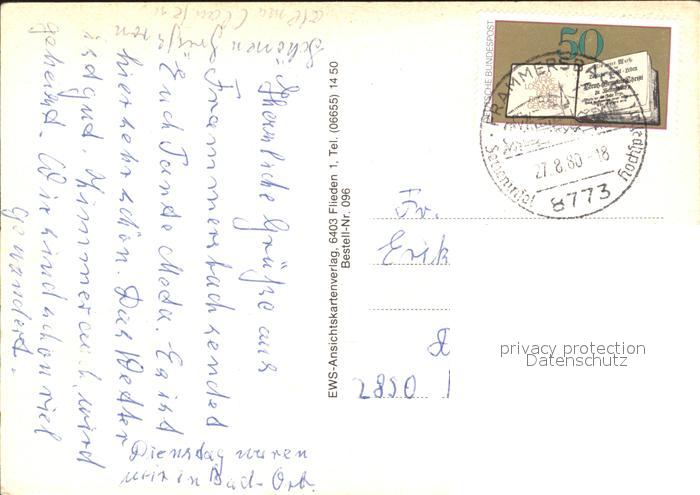 Herzliche Grüße aus
Frammersbach sendet
Euch Tante Meda. Es ist
hier sehr schön. Das Wetter
ist gut. Zimmer auch, wird
geheizt. Wir sind schon viel
gewandert.
Dienstag waren
wir in Bad-Orb.
Schönen Grüße von
EWS-Ansichtskartenverlag, 6403 Flieden 1, Tel. (06655) 14 50
Bestell-Nr. 096
DEUTSCHE BUNDESPOST
50
FRAMMERSBACH
27.8.80-18
8773
Fr.
Erik
2850
privacy protection
Datenschutz